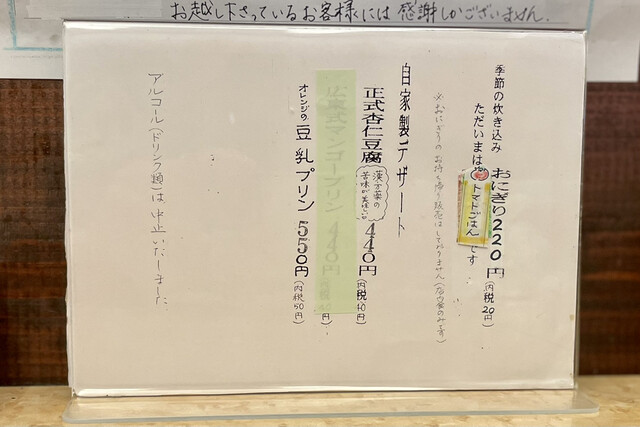 お越し下さっているお客様には感謝しかございません.
季節の炊き込み おにぎり220円(内税20円)
ただいまは トマトごはん です
※おにぎりのお持ち帰り販売はしておりません(店内のみです)
自家製デザート
正式杏仁豆腐 440円(内税40円)
漢方薬の
広東式マンゴープリン 440円
オレンジの豆乳プリン 550円(内税50円)
アルコール(ドリンク類)は中止いたしました